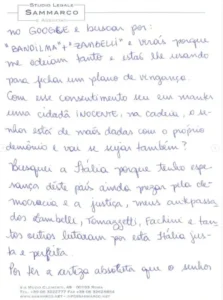 STUDIO LEGALE
SAMMARCO
no GOOGLE e buscar por:
"BANDILMA"+"ZAMBELLI" e virais porque
me odeiam tanto e estão lhe usando
para fechar um plano de vingança.
Com esse consentimento seu em manter
uma cidadã INOCENTE, na cadeia, o se-
nhor está de mãos dadas com o próprio
demônio e vai se sujar também?
Busquei a Itália porque tenho espe-
rança deste país ainda prezar pela de-
mocracia e a justiça, meus antepassa-
dos Zambelli, Tomazetti, Fachini e tan-
tos outros lutaram por esta Itália jus-
ta e perfeita.
Por ter a certeza absoluta que o senhor